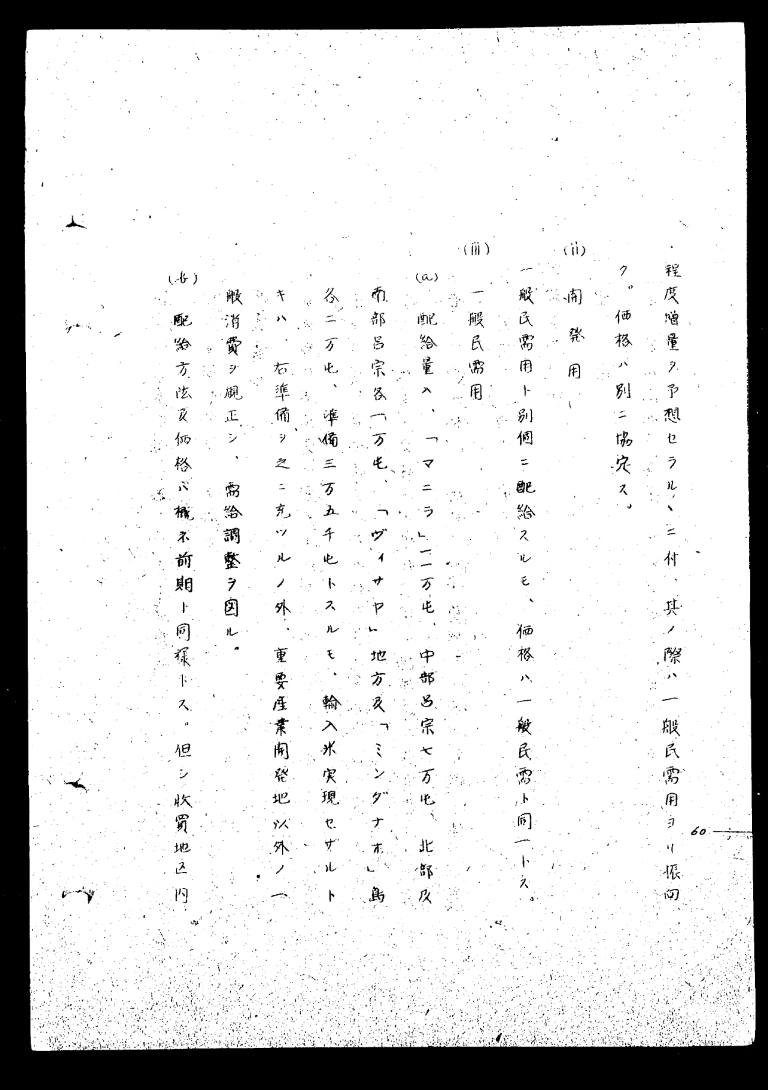 程度増量ヲ予想セラルヽニ付、其ノ際ハ一般民需用ヨリ振向
ク。価格ハ別ニ協定ス。
(ii) 開発用
一般民需用ト別個ニ配給スルモ、価格ハ一般民需ト同一トス。
(iii) 一般民需用
(a) 配給量ハ、「マニラ」一一万屯、中部呂宗七万屯、北部及
南部呂宗各一万屯、「ヴィサヤ」地方及「ミンダナオ」島
各二万屯、準備三万五千屯トスルモ、輸入米実現セザルト
キハ、右準備ヲ之ニ充ツルノ外、重要産業開発地以外ノ一
般消費ヲ規正シ、需給調整ヲ図ル。
(b) 配給方法及価格ハ概ネ前期ト同様トス。但シ收買地区内
60